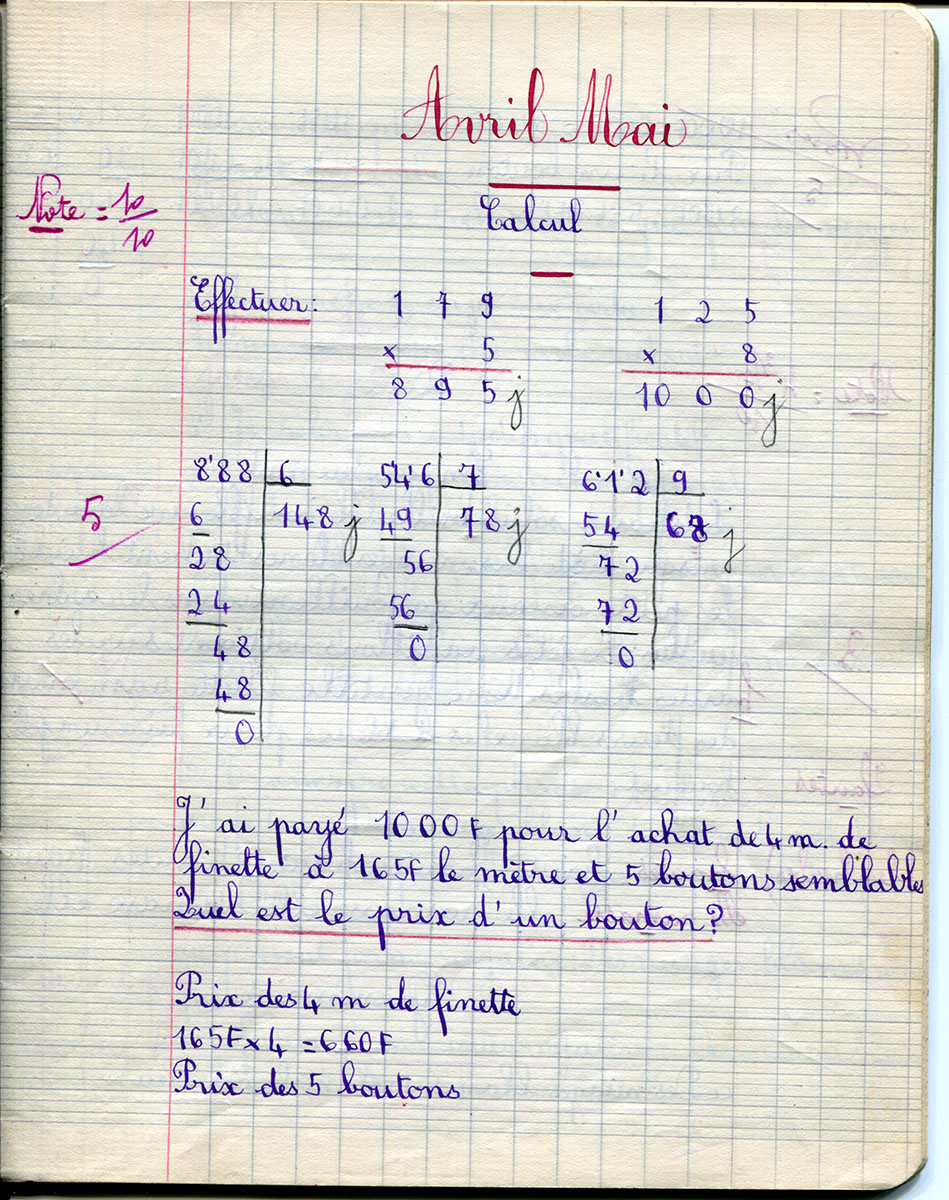 Avril Mai
Note = 10/10
Calcul
Effectuer: 1 7 9 1 2 5
x 5 x 8
8 9 5 j 10 0 0 j
8'88 6 54'6 7 6'1'2 9
5
6 148 j 49 78 j 54 68 j
28 56 72
24 56 72
48 0 0
48
0
J'ai payé 1000F pour l'achat de 4 m. de
finette à 165F le mètre et 5 boutons semblables
Quel est le prix d'un bouton?
Prix des 4 m de finette
165F x 4 = 660F
Prix des 5 boutons